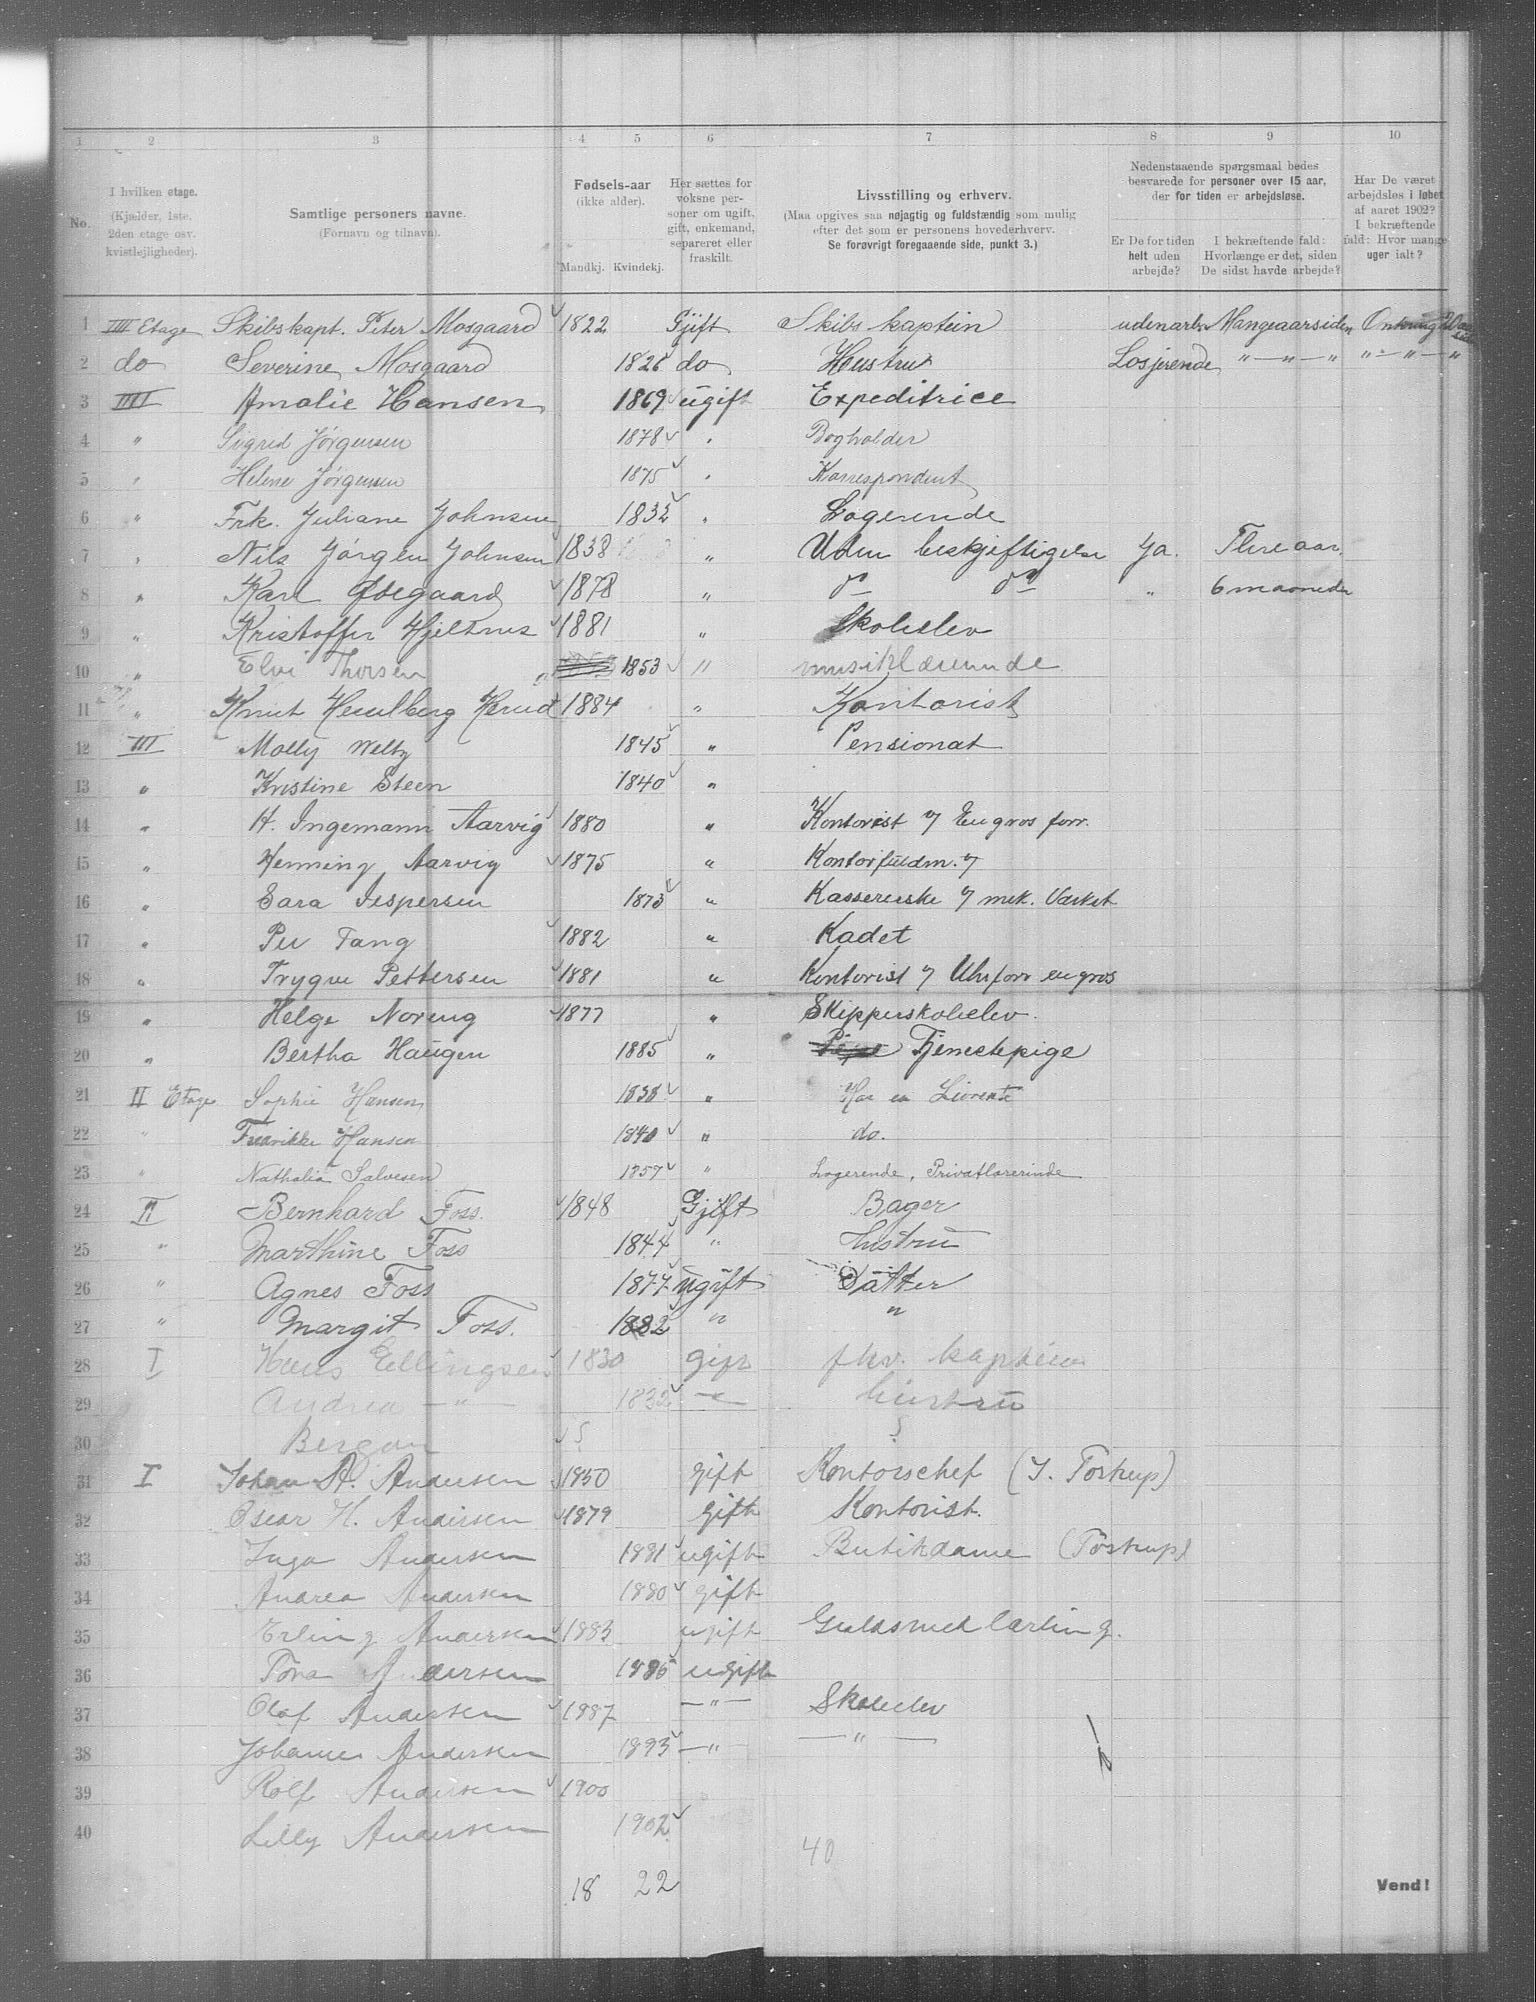 1 2 3 4 5 6 7 8 9 10
No.
I hvilken etage.
(Kjælder, 1ste.
2den etage osv.
kvistlejligheder).
Samtlige personers navne.
(Fornavn og tilnavn).
Fødsels-aar
(ikke alder).
Mandkj. Kvindekj.
Her sættes for
voksne per-
soner om ugift,
gift, enkemand,
separeret eller
fraskilt.
Livsstilling og erhverv.
(Maa opgives saa nøjagtig og fuldstændig som mulig
efter det som er personens hovederhverv.
Se forøvrigt foregaaende side, punkt 3.)
Nedenstaaende spørgsmaal bedes
besvarede for personer over 15 aar,
der for tiden er arbejdsløse.
Er De for tiden
helt uden
arbejde?
I bekræftende fald:
Hvorlænge er det, siden
De sidst havde arbejde?
Har De været
arbejdsløs i løbet
af aaret 1902?
I bekræftende
fald: Hvor mange
uger ialt?
1 IIII Etage Skibskapt. Peter Mosgaard 1822 Gjift Skibs kaptein udenarb. Mangeaarsiden
2 do Severine Mosgaard 1826 do Hustru Losjerende " — " — " " — " — "
3 IIII Amalie Hansen 1869 ugift Expeditrice
4 " Sigred Jørgensen 1878 " Bogholder
5 " Helene Jørgensen 1875 " Korrespondent
6 " Frk. Juliane Johnsen 1832 " Logerende
7 " Nils Jørgen Johnsen 1838 " Uden beskjeftigelse Ja. Flere aar.
8 " Karl Ødegaard 1878 " do do " 6 maaneder
9 " Kristoffer Hjeltnes 1881 " Skoleelev
10 " Elvi Thorsen 1853 " musiklærerinde
11 " Knut Herud 1884 " Kontorist
12 III Molly Welty 1845 " Pensionat
13 " Kristine Steen 1840 "
14 " H. Ingemann Aarvig 1880 " Kontorist i Engros forr.
15 " Henning Aarvig 1875 " Kontorfuldm. i
16 " Sara Jespersen 1873 " Kassererske i mek. Værkst
17 " Per Tang 1882 " Kadet
18 " Trygve Pettersen 1881 " Kontorist i Uhrforr engros
19 " Helge Noreng 1877 " Skipperskoleelev.
20 " Bertha Haugen 1885 " Tjenestepige
21 II Etage Sophie Hansen 1838 " Har en Livrente
22 " Fredrikke Hansen 1840 " do.
23 " Nathalia Salvesen 1857 " Logerende, Privatlærerinde
24 II Bernhard Foss. 1848 Gjift Bager
25 " Marthine Foss 1844 " Hustru
26 " Agnes Foss 1877 Ugift Datter
27 " Margit Foss. 1882 " "
28 I Hans Ellingsen 1830 gift fhv. kaptein
29 Andrea — " — 1832 — " — hustru
30 Bergan
31 I Johan A. Andersen 1850 gift Kontorschef (J. Tostrup)
32 Oscar H. Andersen 1879 gift Kontorist.
33 Inga Andersen 1881 ugift Butikdame (Tostrup)
34 Andrea Andersen 1880 gift
35 Erling Andersen 1883 ugift Guldsmedlærling.
36 Tora Andersen 1885 ugift
37 Olaf Andersen 1887 — " — Skoleelev
38 Johanne Andersen 1893 — " — — " —
39 Rolf Andersen 1900
40 Lilly Andersen 1902
40
18 22
Vend!